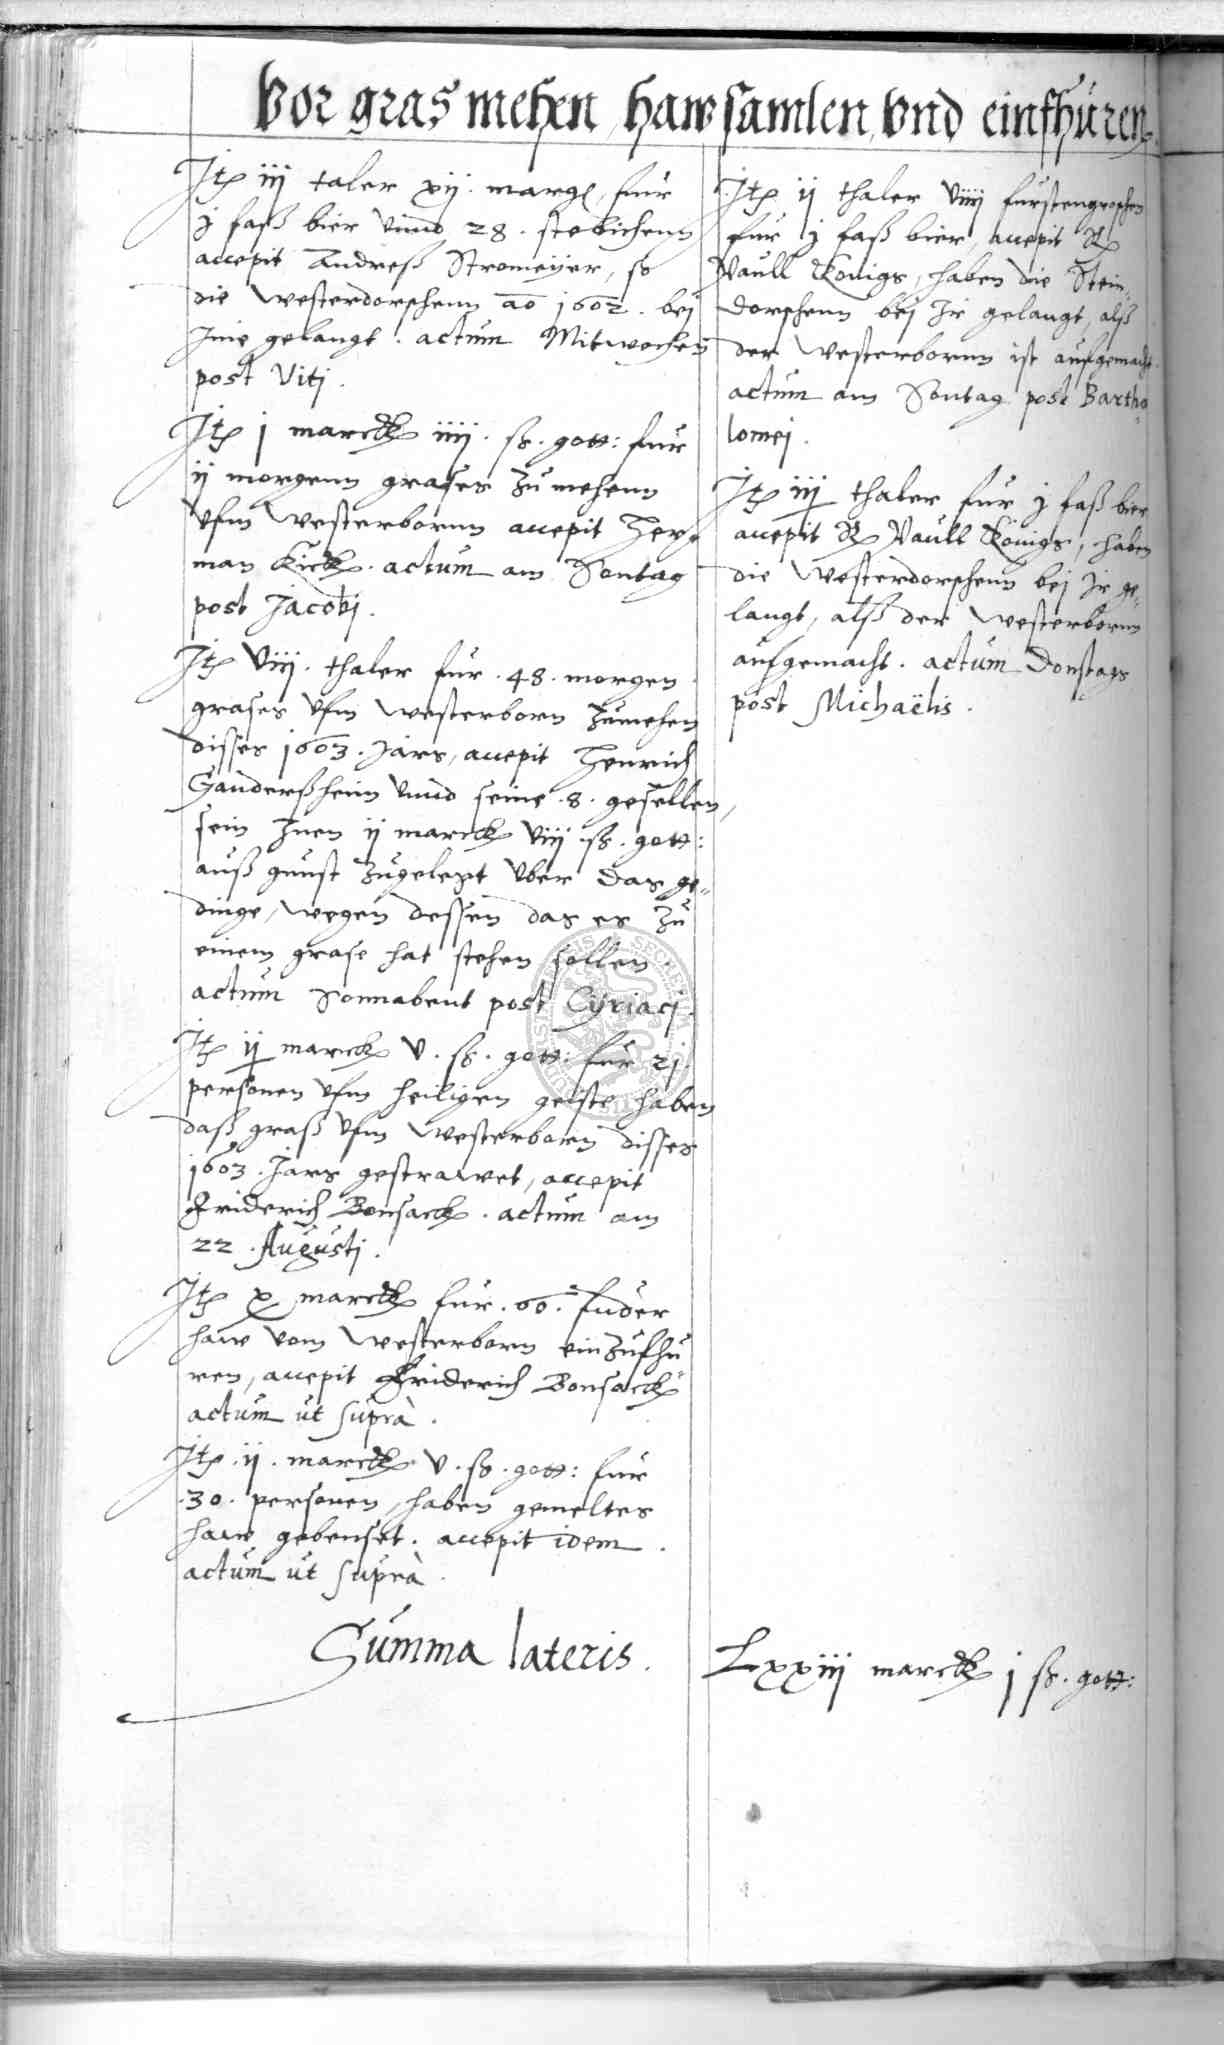 Vor gras mehen, haw samlen, vnd einfhüren.
Itz iij taler xij. marg, fur
j faß bier vnnd 28. stobichenn
accepit Andreß Stromeijer, so
die westerdorschenn ao 1602. bei
Ime gelangt. actum Mitwochen
post Viti.
Itz j marck iiij. ß. gott: fur
ij morgenn grases zu mehenn
vfm westerbornn accepit Her-
man Kick. actum am Sontag
post Jacobi.
Itz viij. thaler fur .48. morgen
grases vfm westerborn zumehen
disses 1603. Jars, accepit Henrich
Gandersßheim vnnd seine .8. gesellen,
sein Inen ij marck viij ß. gott:
auß gunst zugelegt vber das ge-
dinge, wegen dessen das es zu
einem grase hat stehen sollen.
actum Sonnabent post Cÿriaci.
Itz ij marck v. ß. gott: fur 21.
personen vfm heiligen geiste haben
daß graß vfm westerborn disses
1603. Jars gestrawet, accepit
Friderich Bonsack. actum am
22. Augusti.
Itz x marck fur .60. fuder
haw vom westerborn einzufhu
ren, accepit Friderich Bonsack
actum ut suprà.
Itz .ij. marck v. ß. gott: fur
.30. personen, haben gemeltes
haw gebenset. accepit idem.
actum ut suprà.
Itz ij thaler viiij furstengroschen
fur j faß bier, accepit
Paull Konigs, haben die Stein-
dorschenn bei Ir gelangt, alß
der westerbornn ist aufgemacht.
actum am Sontag post Bartho
lomei.
Itz iij thaler fur j faß bier
accepit Paull Königs, haben
die westerdorschenn bei Ir ge-
langt, alß der westerbornn
aufgemacht. actum Donstags
post Michaëlis.
Summa lateris. Lxxiij marck j ß. gott: